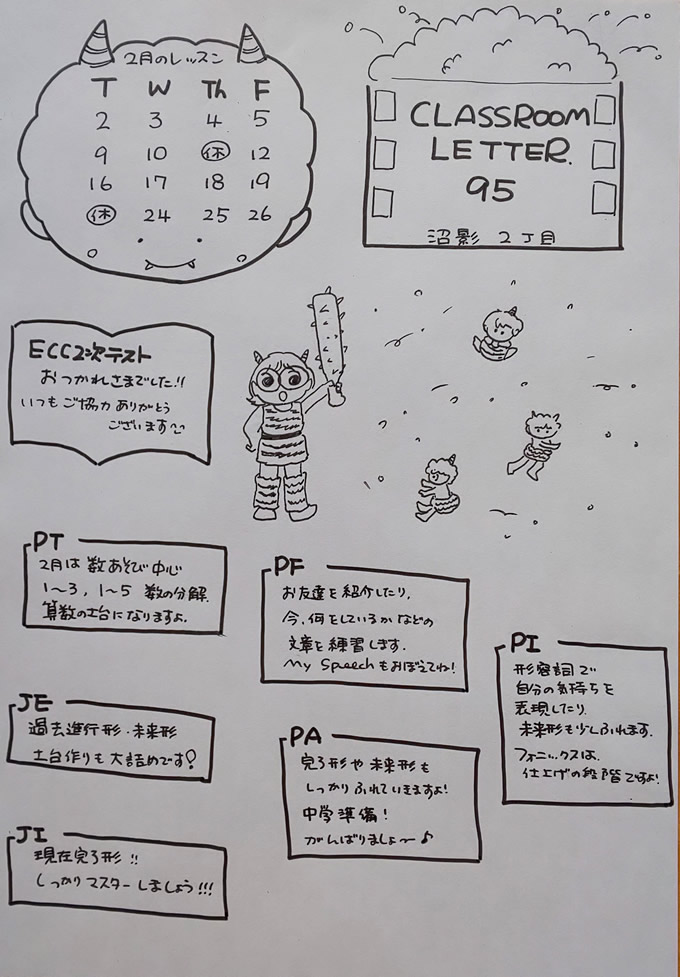 2月のレッスン
T W Th F
2 3 4 5
9 10 休 12
16 17 18 19
休 24 25 26
CLASSROOM
LETTER.
95
沼影 2丁目
ECC2次テスト
おつかれさまでした!!
いつもご協力ありがとう
ございます
PT
2月は数あそび中心
1〜3, 1〜5 数の分解.
算数の土台になりますよ.
PF
お友達を紹介したり,
今,何をしているかなどの
文章を練習します.
My Speechもおぼえてね!
PI
形容詞で
自分の気持ちを
表現したり.
未来形も少しふれます.
フォニックスは.
仕上げの段階ですよ!
JE
過去進行形・未来形
土台作りも大詰めです!
PA
完了形や未来形も
しっかりふれていきますよ!
中学準備!
がんばりましょ〜♪
JI
現在完了形 !!
しっかりマスターしましょう!!!